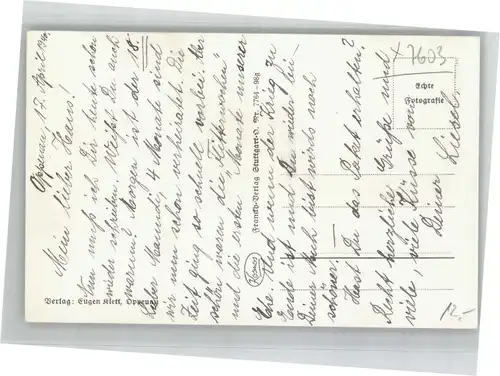 Oppenau, 17. April 194
Mein lieber Hans!
Nun muß ich Dir heute schon
wieder schreiben. Weißt Du auch
warum? Morgen ist der 18.
Lieber Mann, 4 Monate sind
wir nun schon verheiratet. Die
Zeit ging so schnelle vorbei. Aber
schön waren die „Flitterwochen“
und die ersten „Monate“ unserer
Ehe. Und wenn der Krieg zu
Ende ist und Du wieder bei
Deiner bist wirds noch
schöner.
Hast Du das Paket erhalten?
Recht herzliche Grüße und
viele, viele Küsse von
Deiner
Liesel.
Verlag: Eugen Klett, Oppenau
Franckh-Verlag Stuttgart-O. Nr. 7764-98g
Kosmos
Echte
Fotografie
x 7603
12,-